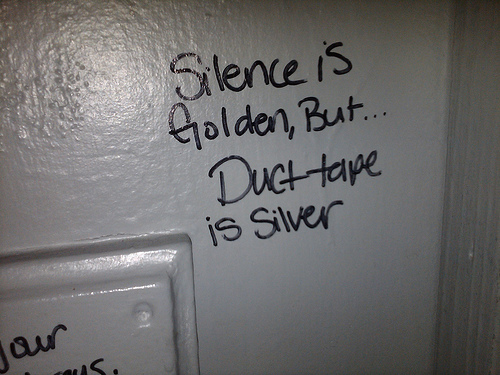 Silence is
Golden, But...
Duct tape
is Silver
your